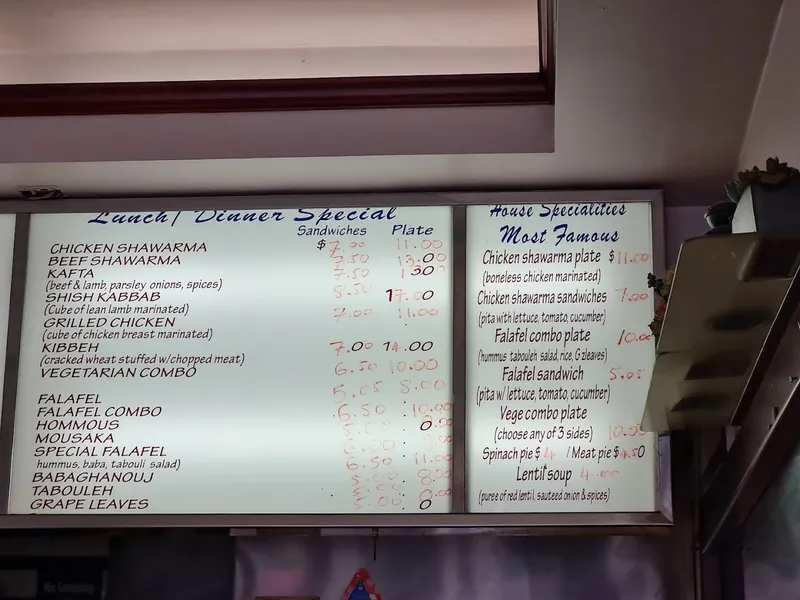 Lunch/ Dinner Special
Sandwiches Plate
CHICKEN SHAWARMA $7.00 11.00
BEEF SHAWARMA 7.50 13.00
KAFTA 7.50
(beef & lamb, parsley onions, spices)
SHISH KABBAB 8.50 17.00
(Cube of lean lamb marinated)
GRILLED CHICKEN 7.00 11.00
(cube of chicken breast marinated)
KIBBEH 7.00 14.00
(cracked wheat stuffed w/chopped meat)
VEGETARIAN COMBO 6.50 10.00
FALAFEL 5.05 8.00
FALAFEL COMBO 6.50 10.00
HOMMOUS
MOUSAKA
SPECIAL FALAFEL 6.50 11.00
hummus, baba, tabouli salad)
BABAGHANOUJ
TABOULEH
GRAPE LEAVES
House Specialities
Most Famous
Chicken shawarma plate $11.00
(boneless chicken marinated)
Chicken shawarma sandwiches 7.00
(pita with lettuce, tomato, cucumber)
Falafel combo plate 10.00
(hummus tabouleh salad, rice, G.leaves)
Falafel sandwich 5.05
(pita w/ lettuce, tomato, cucumber)
Vege combo plate
(choose any of 3 sides) 10.00
Spinach pie $4 / Meat pie $4.50
Lentil soup 4.00
(puree of red lentil, sauteed onion & spices)